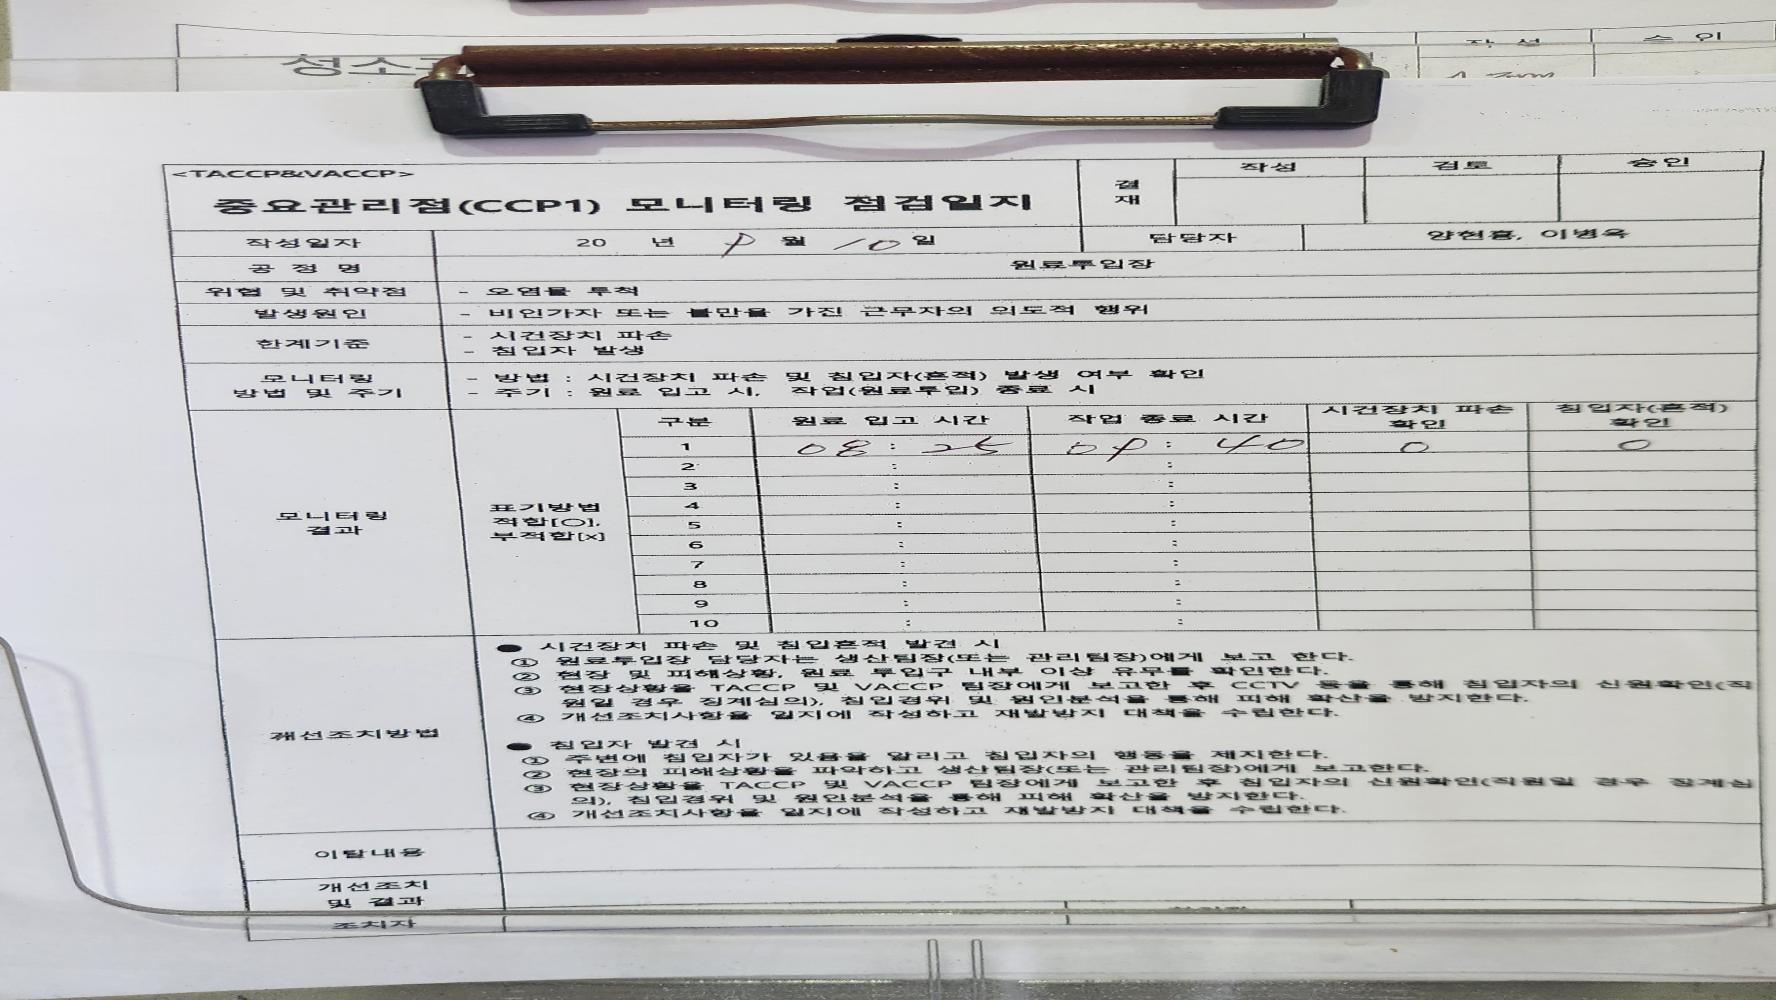 성소
작 성
승 인
<TACCP&VACCP>
중요관리점(CCP1) 모니터링 점검일지
결재
작성
검토
승인
작성일자
20 년 9 월 10 일
담당자
양현흠, 이병욱
공 정 명
원료투입장
위협 및 취약점
- 오염물 투척
발생원인
- 비인가자 또는 불만을 가진 근무자의 의도적 행위
한계기준
- 시건장치 파손
- 침입자 발생
모니터링
방법 및 주기
- 방법 : 시건장치 파손 및 침입자(흔적) 발생 여부 확인
- 주기 : 원료 입고 시, 작업(원료투입) 종료 시
모니터링
결과
표기방법
적합[○],
부적합[x]
구분
원료 입고 시간
작업 종료 시간
시건장치 파손
확인
침입자(흔적)
확인
1 08 : 25 09 : 40 0 0
2 : :
3 : :
4 : :
5 : :
6 : :
7 : :
8 : :
9 : :
10 : :
개선조치방법
● 시건장치 파손 및 침입흔적 발견 시
① 원료투입장 담당자는 생산팀장(또는 관리팀장)에게 보고 한다.
② 현장 및 피해상황, 원료 투입구 내부 이상 유무를 확인한다.
③ 현장상황을 TACCP 및 VACCP 팀장에게 보고한 후 CCTV 등을 통해 침입자의 신원확인(직
원일 경우 징계심의), 침입경위 및 원인분석을 통해 피해 확산을 방지한다.
④ 개선조치사항을 일지에 작성하고 재발방지 대책을 수립한다.
● 침입자 발견 시
① 주변에 침입자가 있음을 알리고 침입자의 행동을 제지한다.
② 현장의 피해상황을 파악하고 생산팀장(또는 관리팀장)에게 보고한다.
③ 현장상황을 TACCP 및 VACCP 팀장에게 보고한 후 침입자의 신원확인(직원일 경우 징계심
의), 침입경위 및 원인분석을 통해 피해 확산을 방지한다.
④ 개선조치사항을 일지에 작성하고 재발방지 대책을 수립한다.
이탈내용
개선조치
및 결과
조치자